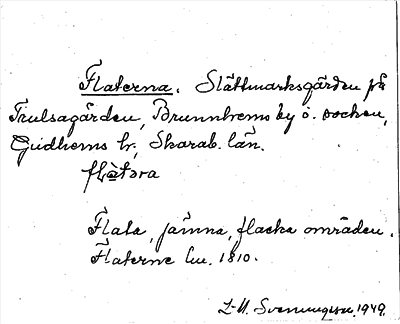 Flaterna. Slättmarksgärden på
Trulsagården, Brunnhems by o. socken,
Gudhems hr, Skarab. län.
flàtəra
Flata, jämna, flacka områden.
Flaterne lm. 1810.
L-M. Svenungsson. 1949.